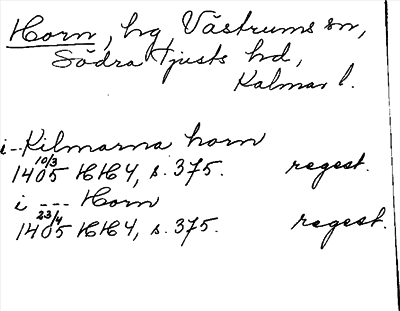 Horn, hg, Västrums sn,
Södra Tjusts hd,
Kalmar l.
i -- Kilmarna horn
10/3
1405 HH4, s. 375. regest.
i --- Horn
23/4
1405 HH4, s. 375. regest.